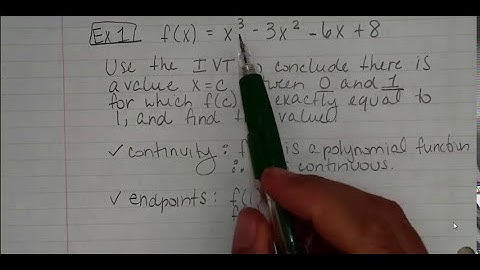 Ex 1 f(x) = x³ - 3x² - 6x + 8
Use the IVT conclude there is
a value x=c 0 and 1
for which f(c) exactly equal to
1, and find value
✓ continuity: f is a polynomial function
∴ continuous.
✓ endpoints: